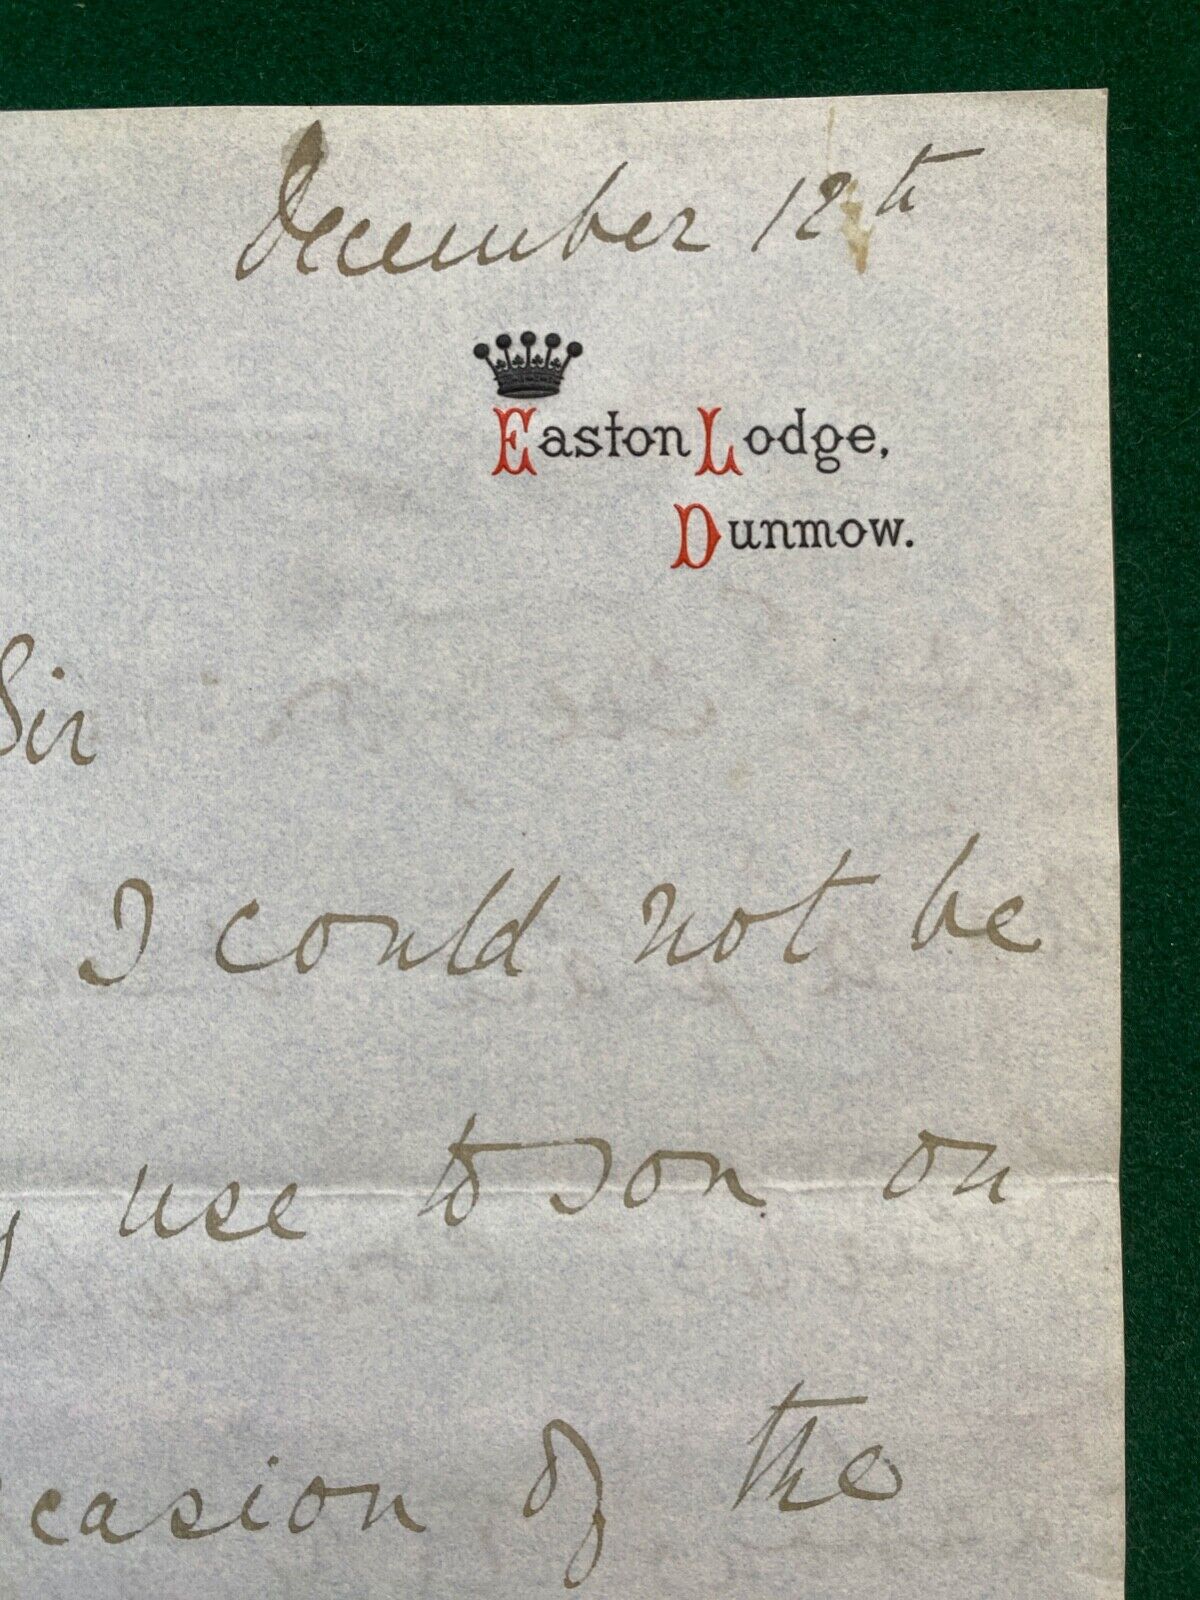 December 12th
Easton Lodge,
Dunmow.
Sir
I could not be
use to you on
ccasion of the